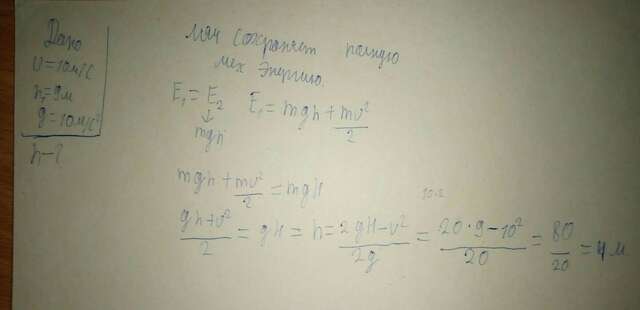 Дано
υ = 10 м/с
h₁ = 9 м
g = 10 м/с²
h - ?
Мяч сохраняет полную
мех энергию.
E₁ = E₂
↓
mgh
E₁ = mgh + mυ²/2
mgh + mυ²/2 = mgH
10·2
gh + υ²/2 = gH = h = 2gH - υ²/2g = 20·9 - 10²/20 = 80/20 = 4 м